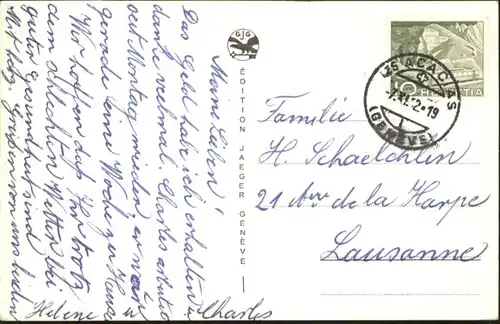 Meine Lieben!
Das Geld habe ich erhalten u.
danke vielmal. Charles arbeitet
seit Montag wieder, er war
gerade eine Woche zu Hause.
Wir hoffen dass Ihr trotz
dem schlechten Wetter bei
guter Gesundheit sind
Mit herzl. Grüssen uns beiden
Helene u. Charles
GJG
ÉDITION JAEGER GENÈVE
HELVETIA
ACACIAS
(GENÈVE)
Familie
H. Schaelchlin
21 Av. de la Harpe
Lausanne